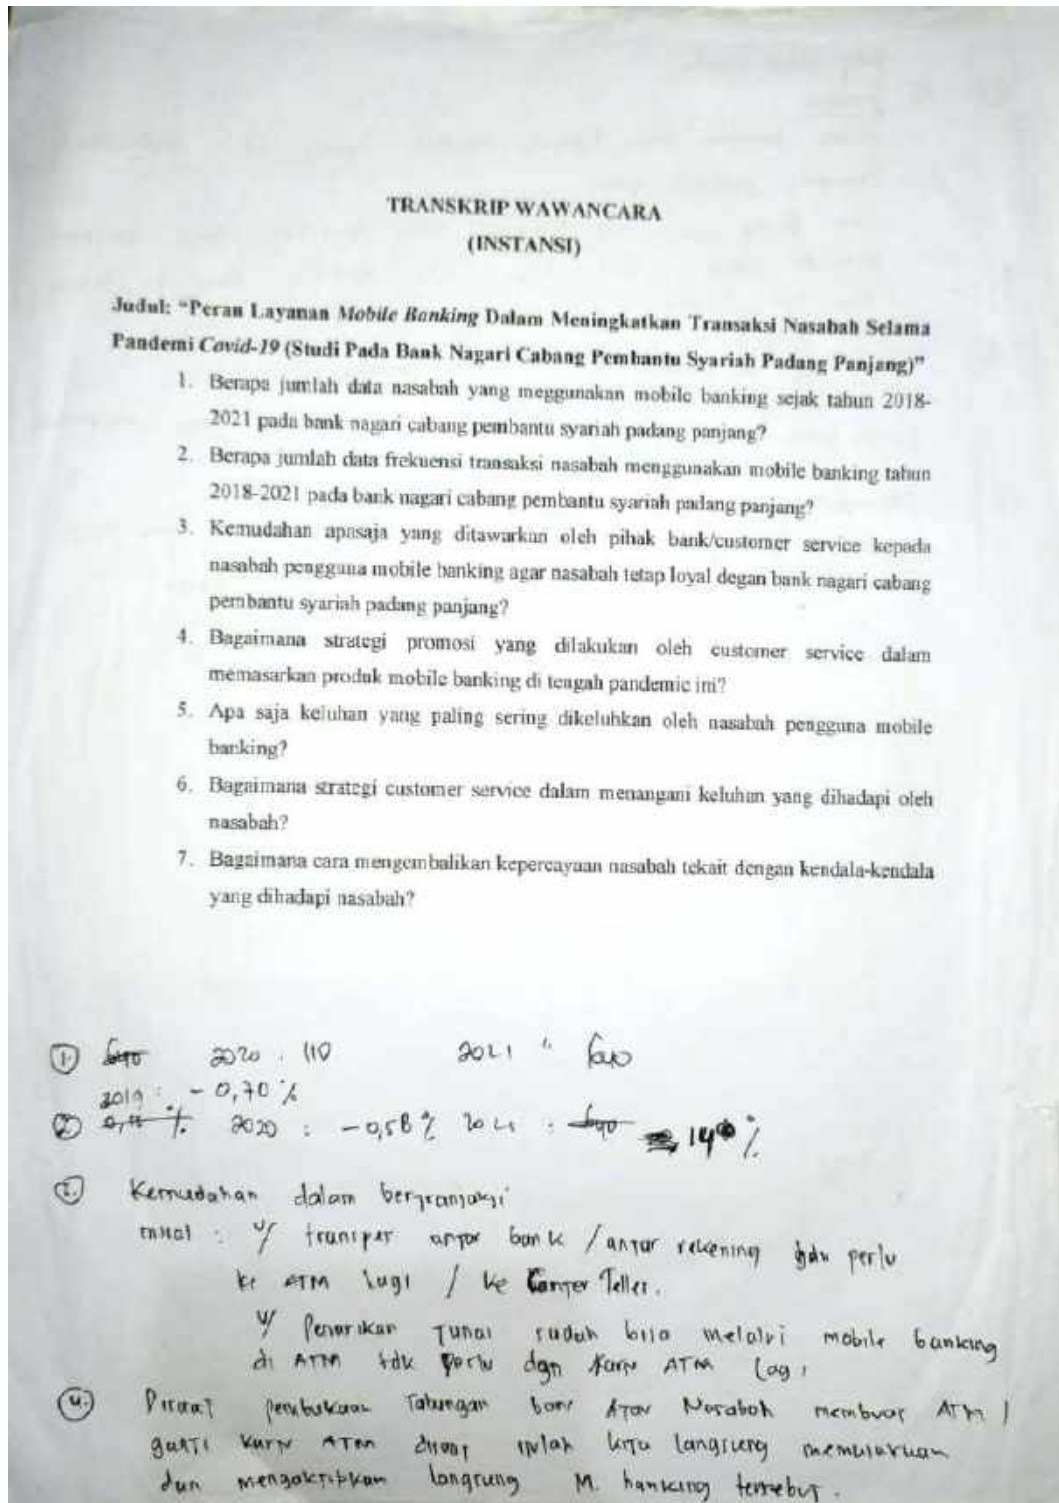 TRANSKRIP WAWANCARA
(INSTANSI)
Judul: "Peran Layanan Mobile Banking Dalam Meningkatkan Transaksi Nasabah Selama
Pandemi Covid-19 (Studi Pada Bank Nagari Cabang Pembantu Syariah Padang Panjang)"
1. Berapa jumlah data nasabah yang meggunakan mobile banking sejak tahun 2018-
2021 pada bank nagari cabang pembantu syariah padang panjang?
2. Berapa jumlah data frekuensi transaksi nasabah menggunakan mobile banking tahun
2018-2021 pada bank nagari cabang pembantu syariah padang panjang?
3. Kemudahan apasaja yang ditawarkan oleh pihak bank/customer service kepada
nasabah pengguna mobile banking agar nasabah tetap loyal degan bank nagari cabang
pembantu syariah padang panjang?
4. Bagaimana strategi promosi yang dilakukan oleh customer service dalam
memasarkan produk mobile banking di tengah pandemic ini?
5. Apa saja keluhan yang paling sering dikeluhkan oleh nasabah pengguna mobile
banking?
6. Bagaimana strategi customer service dalam menangani keluhan yang dihadapi oleh
nasabah?
7. Bagaimana cara mengembalikan kepercayaan nasabah tekait dengan kendala-kendala
yang dihadapi nasabah?
1. 2020 : 110 2021 :
2019 : - 0,70 %
2 2020 : -0,58 % : %
Kemudahan dalam bertransaksi
misal : u/ transper antar bank / antar rekening perlu
ke ATM lagi / ke Conter Teller.
u/ Penarikan Tunai sudah bisa melalui mobile banking
di ATM tdk perlu dgn Kartu ATM lagi
4. Disaat pembukaan Tabungan baru Atau Nasabah membuat ATM /
ganti kartu ATM disaat itulah kita langsung
dan langsung M. banking tersebut.